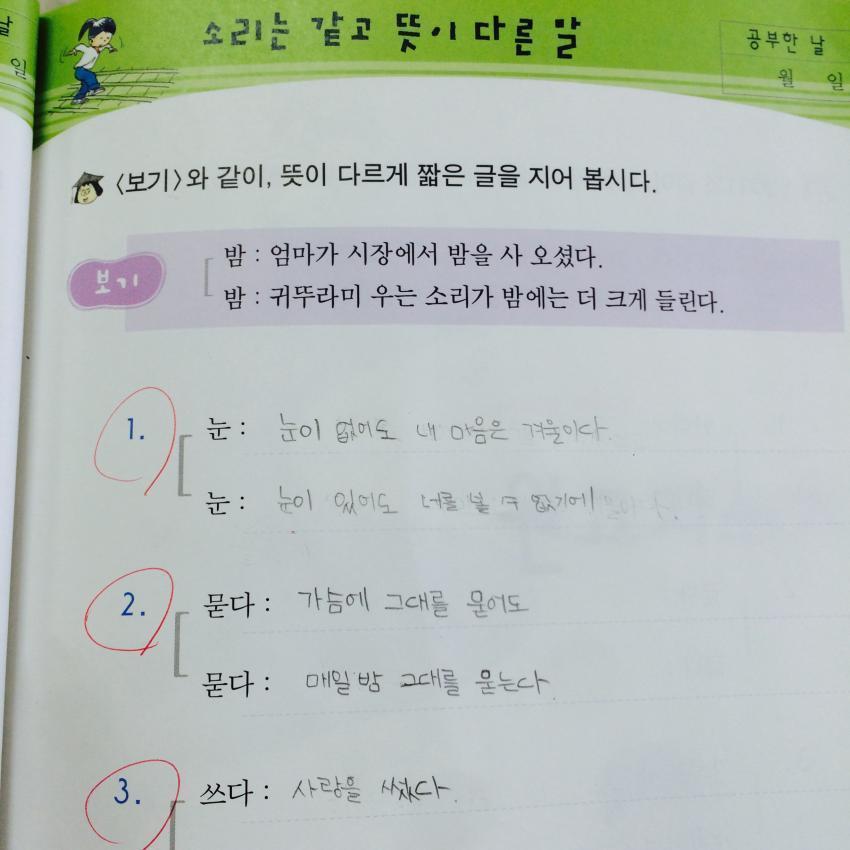 날
일
소리는 같고 뜻이 다른 말
공부한 날
월 일
〈보기〉와 같이, 뜻이 다르게 짧은 글을 지어 봅시다.
보기
밤 : 엄마가 시장에서 밤을 사 오셨다.
밤 : 귀뚜라미 우는 소리가 밤에는 더 크게 들린다.
1.
눈 : 눈이 없어도 내 마음은 겨울이다.
눈 : 눈이 있어도 너를 볼 수 없기에
2.
묻다 : 가슴에 그대를 묻어도
묻다 : 매일 밤 그대를 묻는다
3.
쓰다 : 사랑을 썼다.